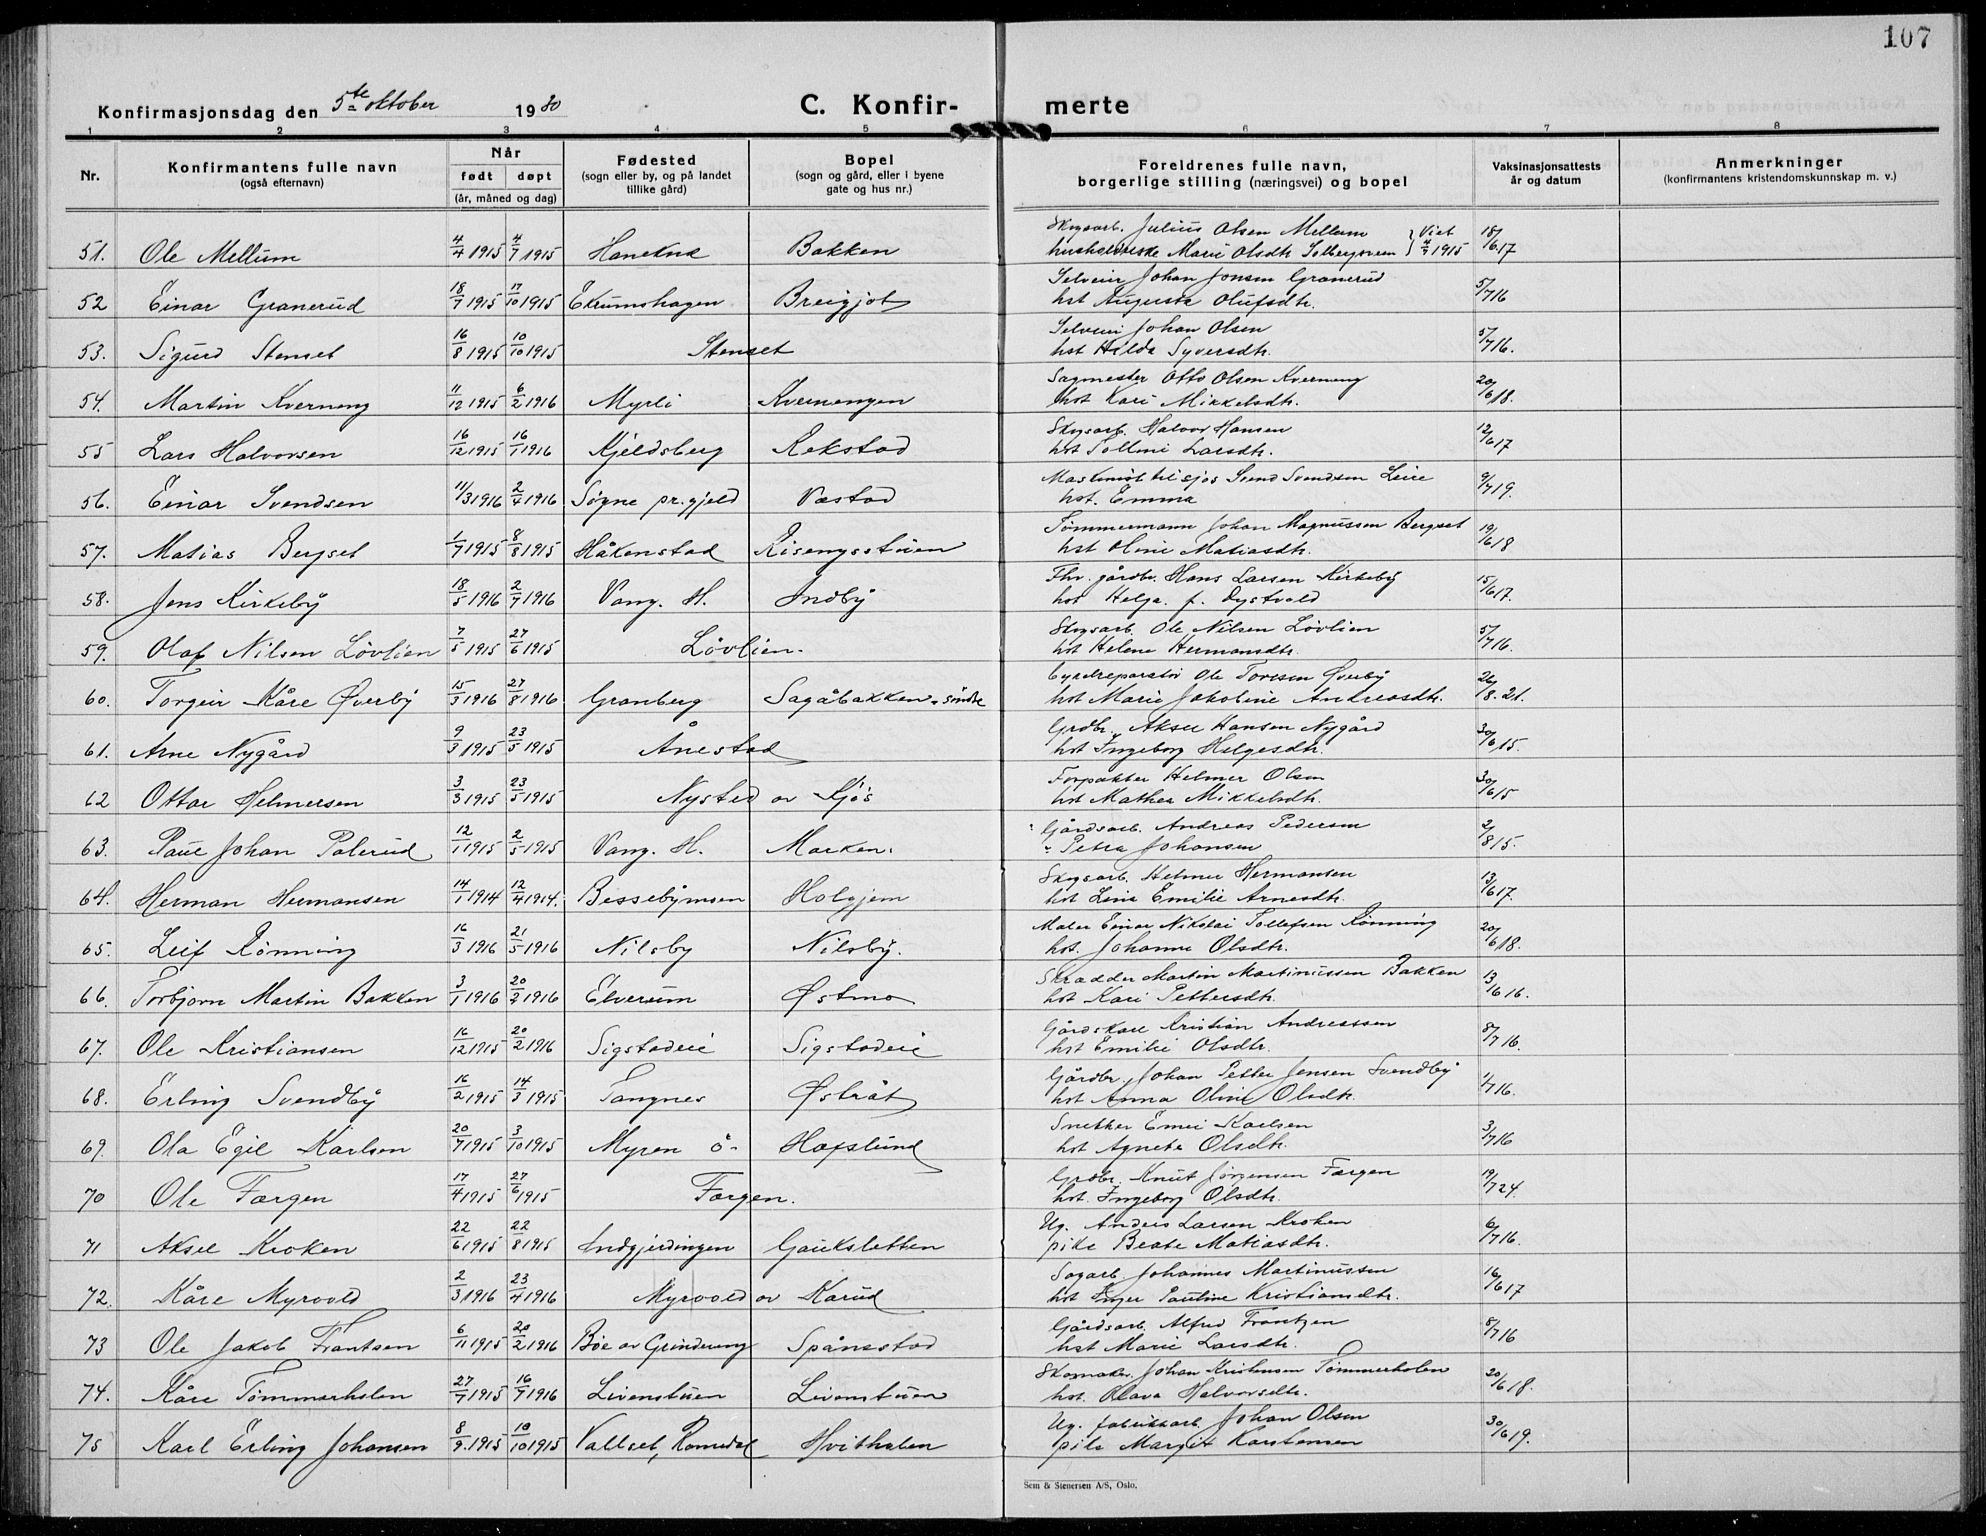 107
Konfirmasjonsdag den 5te oktober 1930 C. Konfir- merte
1 2 3 4 5 6 7 8
Nr.
Konfirmantens fulle navn
(også efternavn)
Når
født døpt
(år, måned og dag)
Fødested
(sogn eller by, og på landet
tillike gård)
Bopel
(sogn og gård, eller i byene
gate og hus nr.)
Foreldrenes fulle navn,
borgerlige stilling (næringsvei) og bopel
Vaksinasjonsattests
år og datum
Anmerkninger
(konfirmantens kristendomskunnskap m. v.)
51. Ole Mellum 4/4 1915 4/7 1915 Bakken Skogsarb. Julius Olsen Mellum } Viet 18/6 17
Marie Olsdtr. Solbergsveen } 4/7 1915
52 Einar Granerud 18/7 1915 17/10 1915 Ekrumshagen Breigjot Selveier Johan Jonsen Granerud 5/7 16
hst Augusta Olufsdtr.
53. Sigurd Stenset 16/8 1915 10/10 1915 Stenset Selveier Johan Olsen 5/7 16.
hst Hilda Syversdtr.
54. Martin Kverneng 11/12 1915 6/2 1916 Myrli Kvernengen Sagmester Otto Olsen Kverneng 20/6 18.
hst Kari Mikkelsdtr.
55 Lars Halvorsen 16/12 1915 16/1 1916 Kjeldsberg Rekstad Skogsarb. Halvor Hansen 12/6 17
hst Larsdtr.
56. Einar Svendsen 11/3 1916 2/4 1916 Søgne pr.gjeld Væstad Maskinist til sjøs Svend Svendsen Leire 9/7 19.
hst. Emma
57. Matias Bergset 1/7 1915 8/8 1915 Håkenstad Risengsstuen Tømmermann Johan Magnussen Bergset 19/6 18
hst Oline Matiasdtr.
58. Jens Kirkeby 18/5 1916 2/7 1916 Vang. H. Indby Fhv. gårdbr. Hans Larsen Kirkeby 15/6 17.
hst Helga f. Dystvold
59. Olaf Nilsen Løvlien 7/5 1915 27/6 1915 Løvlien. Skogsarb. Ole Nilsen Løvlien 5/7 16.
hst Helene Hermansdtr.
60. Torgeir Kåre Øverby 15/3 1916 27/8 1916 Granberg Sagåbakken søndre Cyckelreparatør Ole Torssen Øverby 26/8.21.
hst Marie Jakobine Andreasdtr.
61. Arne Nygård 9/3 1915 23/5 1915 Ånestad Grdbr. Aksel Hansen Nygård 30/6 15.
hst Ingeborg Helgesdtr.
62 Ottar Helmersen 3/3 1915 23/5 1915 Nysted av Kjøs Forpakter Helmer Olsen 30/6 15
hst Mathea Mikkelsdtr.
63. Paul Johan Palerud 12/1 1915 2/5 1915 Vang. H. Marken. Gårdsarb. Andreas Pedersen 2/8 15.
Petra Johansen
64. Herman Hermansen 14/1 1914 12/4 1914. Bessebymoen Holgjem Skogsarb. Helmer Hermansen 13/6 17.
hst Lina Emilie Arnesdtr.
65. Leif Rønning 16/3 1916 21/5 1916 Nilsby Nilsby. Maler Einar Nikolai Tollefsen Rønning 20/6 18.
hst. Johanne Olsdtr.
66. Torbjørn Martin Bakken 3/1 1916 20/2 1916 Elverum Østmo Skrædder Martin Martinussen Bakken 13/6 16.
hst Kari Pettersdtr.
67. Ole Kristiansen 16/12 1915 20/2 1916 Sigstadeie Sigstadeie Gårdskarl Kristian Andreassen 8/7 16.
hst Emilie Olsdtr.
68. Erling Svendby 16/2 1915 14/3 1915 Tangnes Østråt Gårdbr. Johan Petter Jensen Svendby 1/7 16.
hst Anna Oline Olsdtr.
69. Ola Egil Karlsen 20/7 1915 3/10 1915 Myren ø. Hafslund Snekker Emil Karlsen 3/7 16
hst Agnete Olsdtr.
70 Ole Færgen 17/4 1915 27/6 1915 Færgen. Grdbr. Knut Jørgensen Færgen 19/7 24.
hst. Ingeborg Olsdtr.
71 Aksel Kroken 22/6 1915 22/8 1915 Indgjerdingen Gaukstetten Ug. Anders Larsen Kroken 6/7 16.
pike Beate Matiasdtr.
72. Kåre Myrvold 2/3 1916 23/4 1916 Myrvold av Karud Sagarb. Johannes Martinussen 16/6 17
hst Inger Pauline Kristiansdtr.
73 Ole Jakob Frantsen 6/11 1915 20/2 1916 Bøe av Grindereng Spånstad Gårdsarb. Alfred Frantzen 8/7 16
hst Marie Larsdtr.
74. Kåre Tømmerholen 27/7 1915 16/7 1916 Livenstuen Livenstuen Skomaker Johan Kristensen Tømmerholen 20/6 18.
hst. Olava Halvorsdtr.
75 Karl Erling Johansen 8/9. 1915 10/10 1915 Vallset, Romedal Hvitholen Ug. fabrikkarb. Johan Olsen 30/6 19.
pike Margit Karstensen
Sem & Stenersen A/S, Oslo.